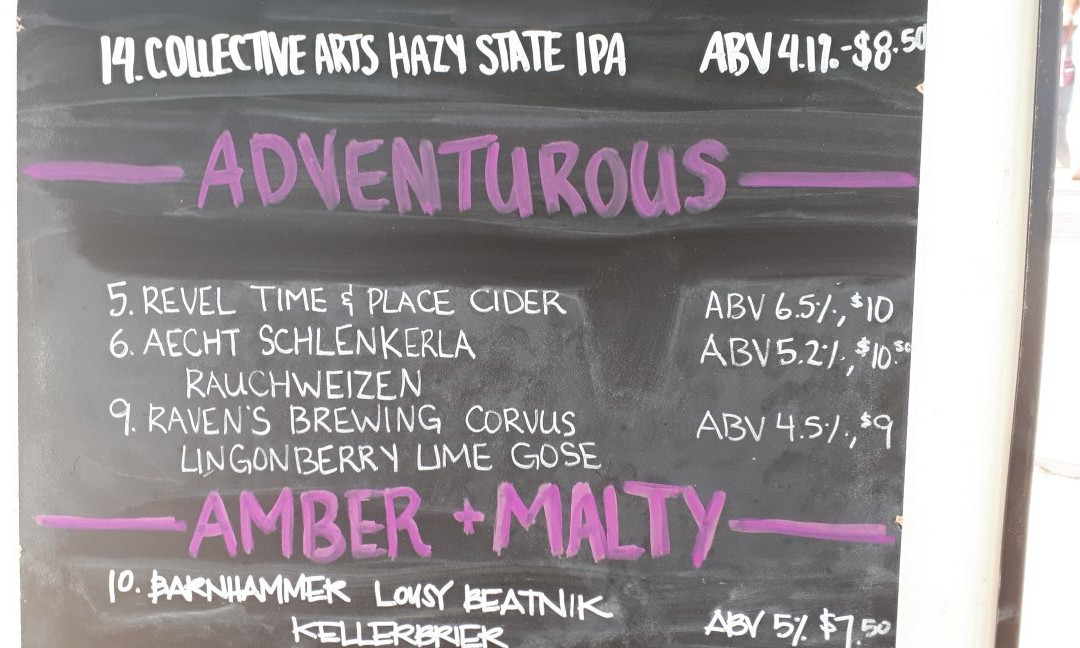 14. COLLECTIVE ARTS HAZY STATE IPA ABV 4.1%-$8.50
ADVENTUROUS
5. REVEL TIME & PLACE CIDER ABV 6.5%, $10
6. AECHT SCHLENKERLA ABV 5.2%, $10.50
RAUCHWEIZEN
9. RAVEN'S BREWING CORVUS ABV 4.5%, $9
LINGONBERRY LIME GOSE
AMBER + MALTY
10. BARNHAMMER LOUSY BEATNIK
KELLERBRIER ABV 5% $7.50